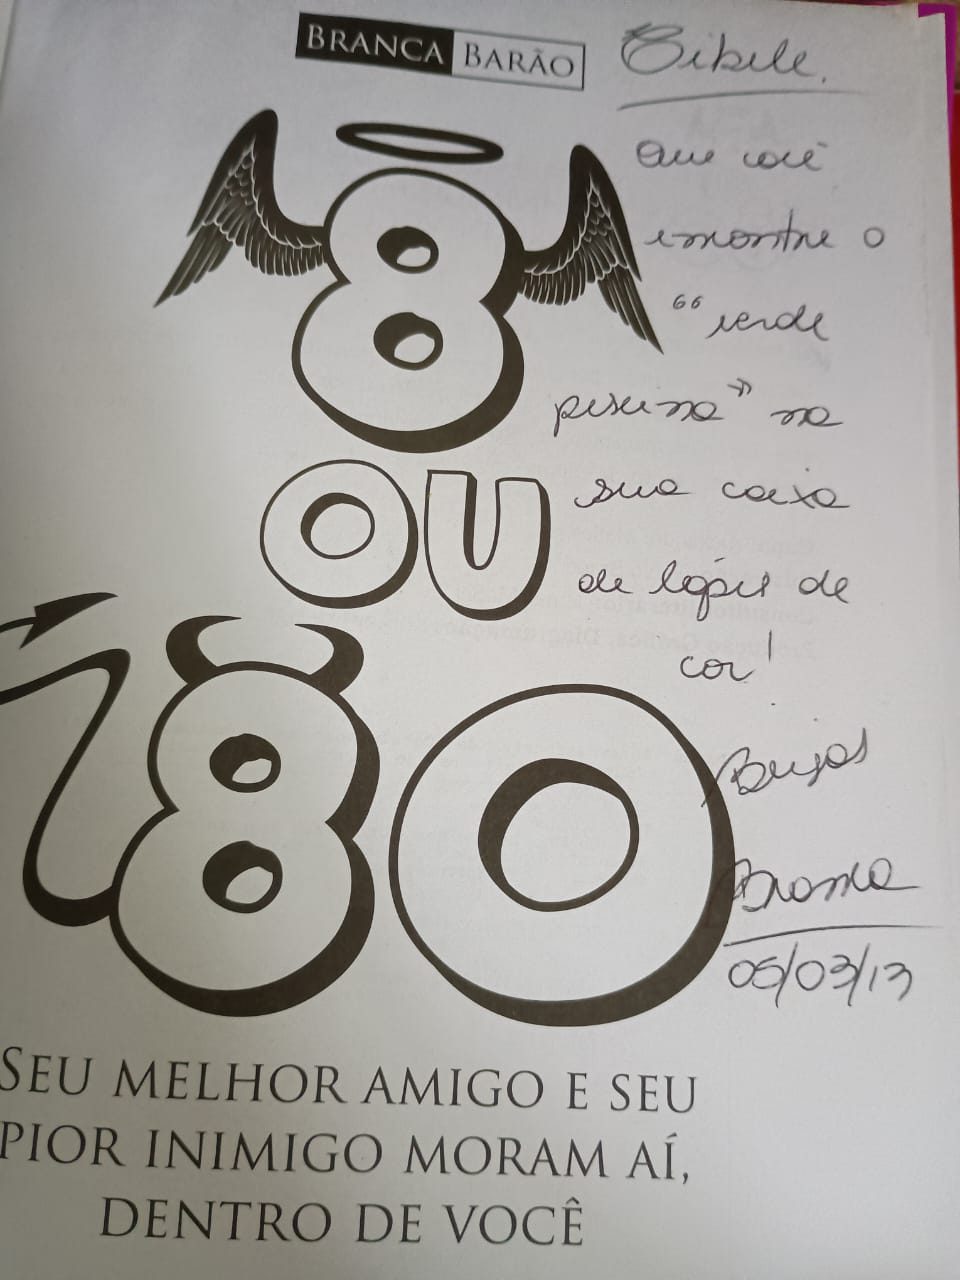 BRANCA BARÃO
Cibele,
Que você
encontre o
"verde
piscina" na
sua caixa
de lápis de
cor!
Beijos
Branca
05/03/13
8
OU
80
SEU MELHOR AMIGO E SEU
PIOR INIMIGO MORAM AÍ,
DENTRO DE VOCÊ